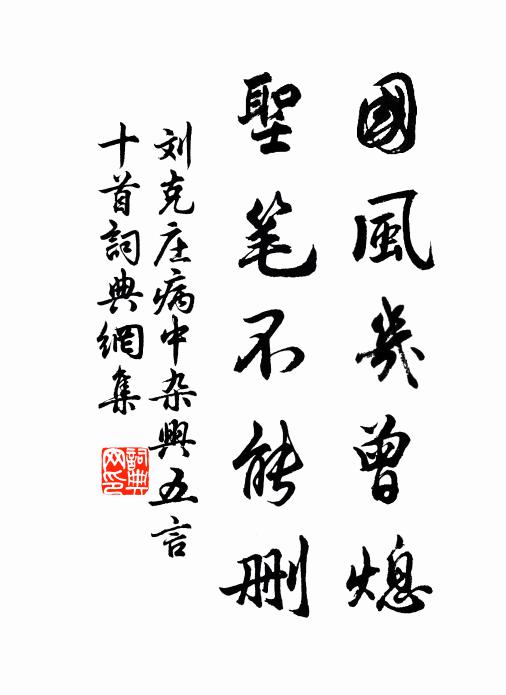 國風幾曾熄
聖笔不能刪
刘克庄病中杂興五言
十首詞典網集
詞典网印